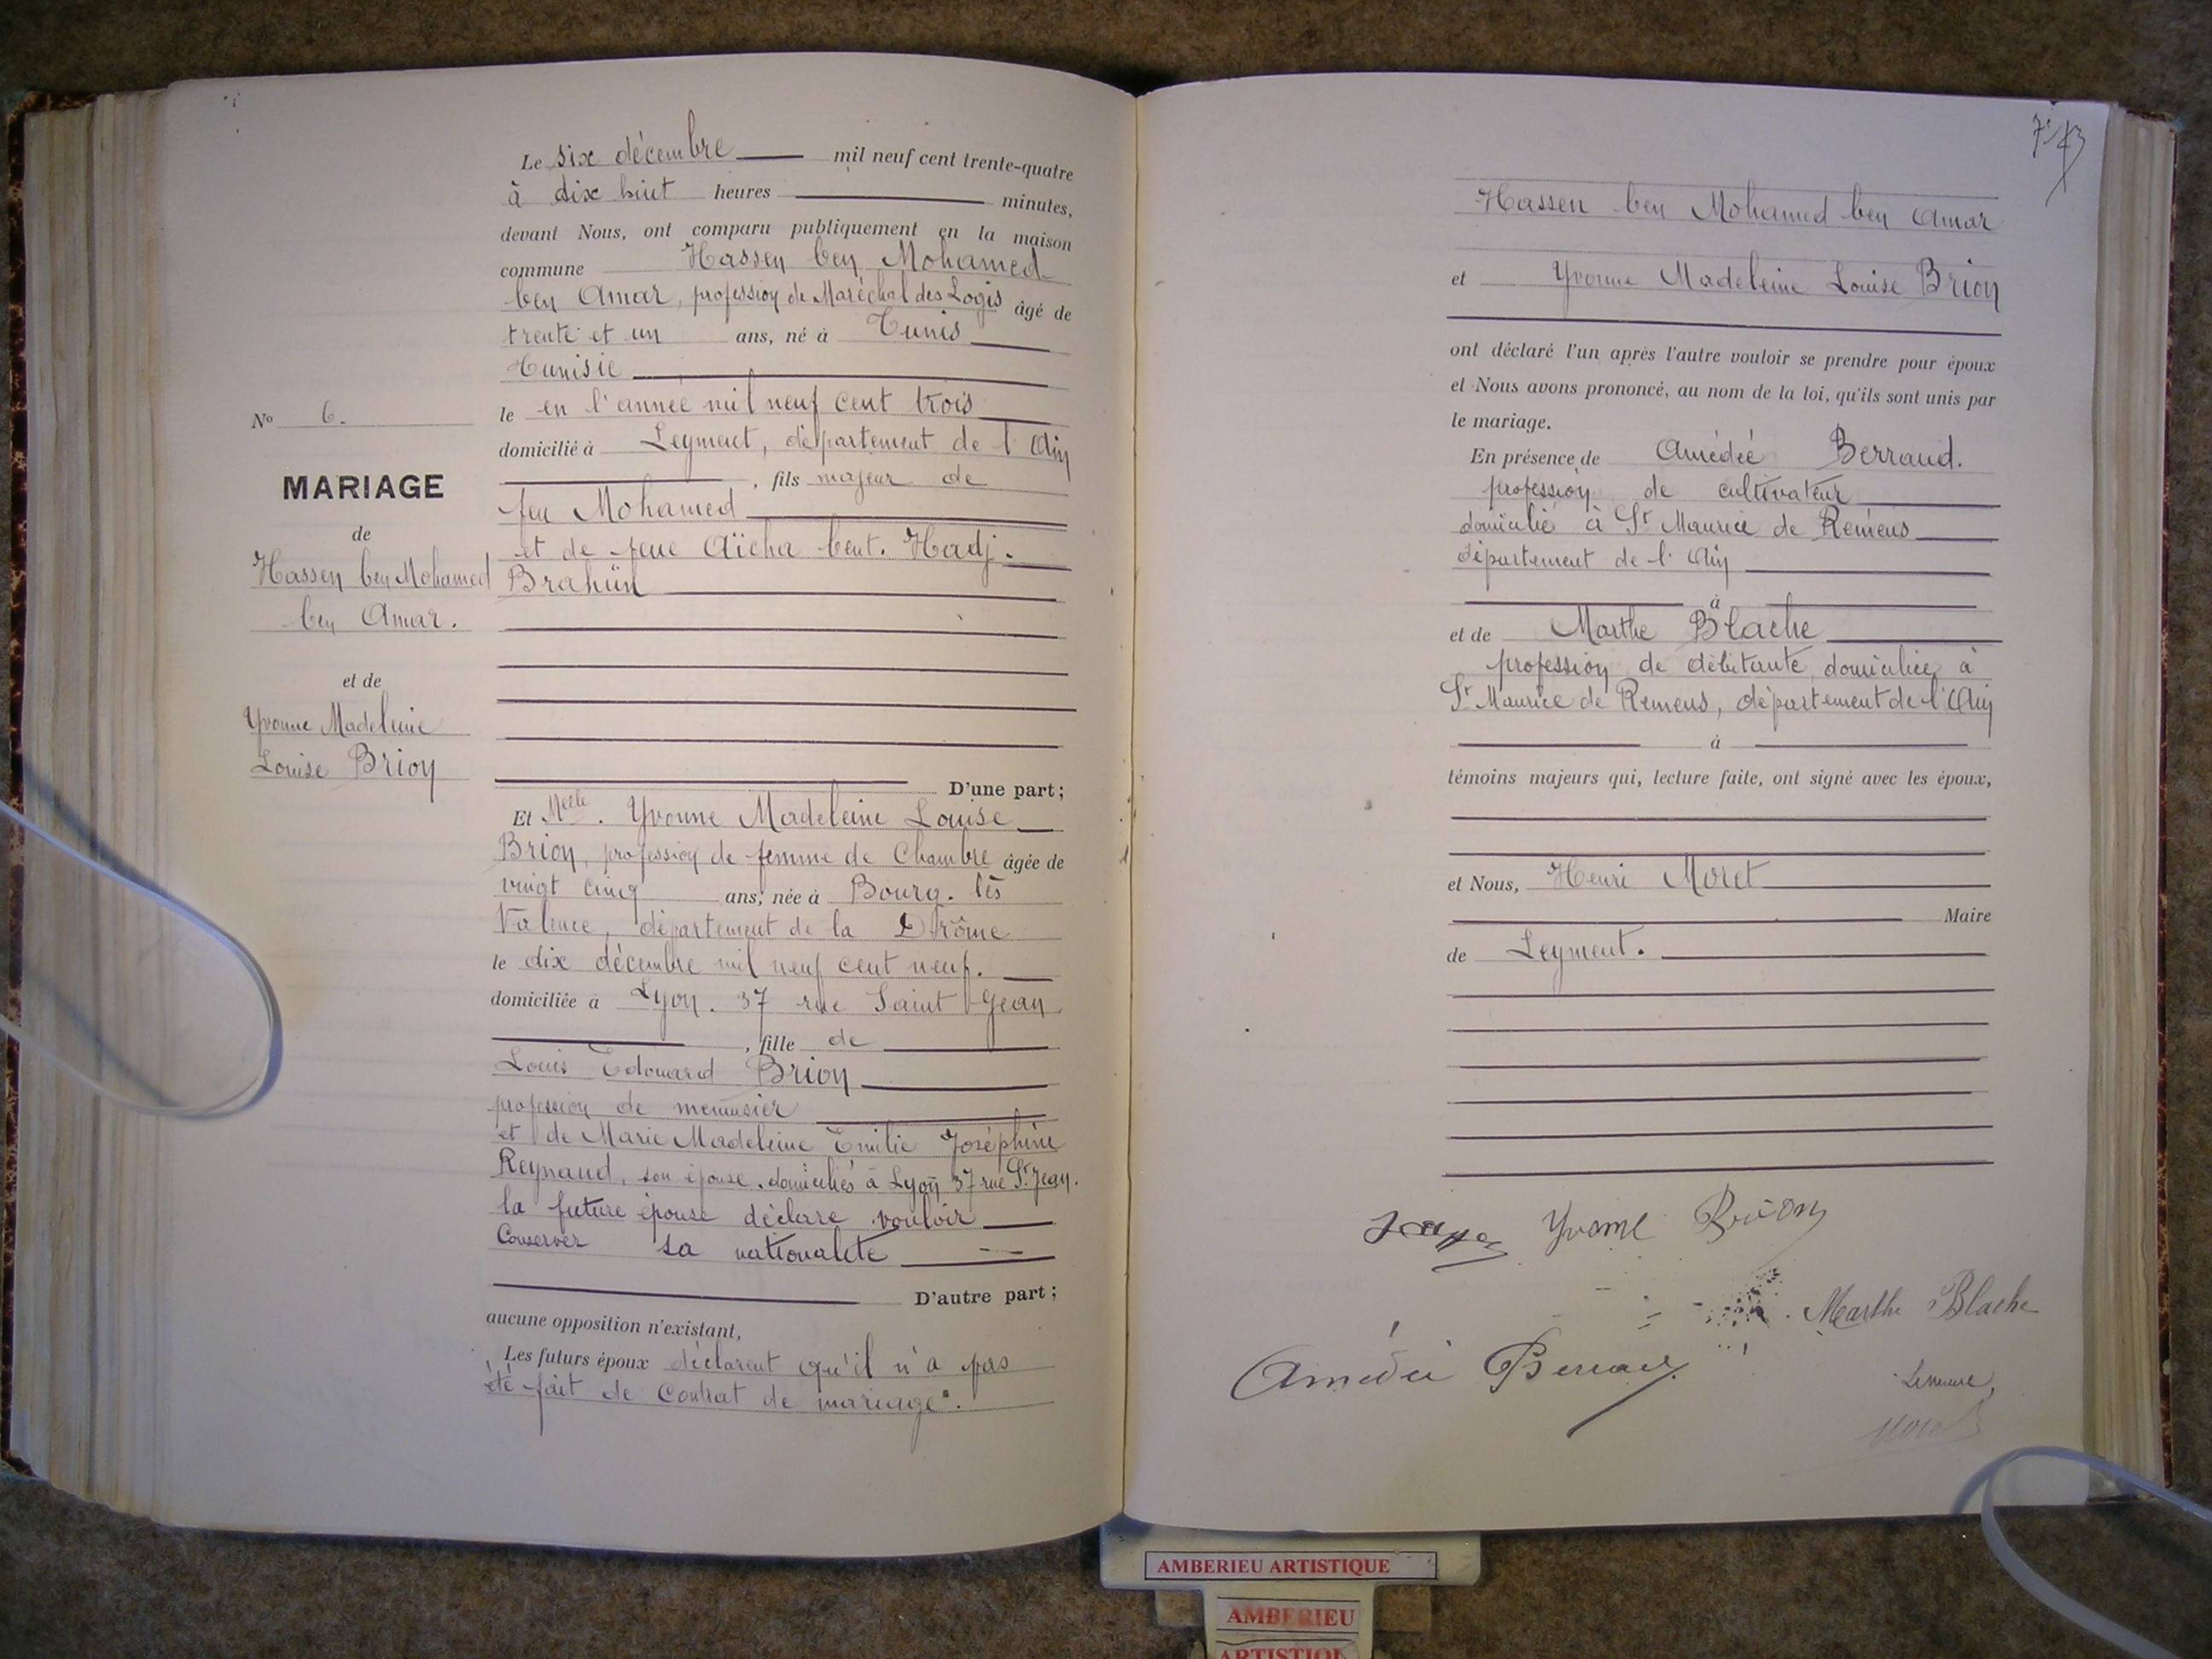 Le six décembre mil neuf cent trente-quatre
à dix huit heures minutes,
devant Nous, ont comparu publiquement en la maison
commune Hassen ben Mohamed
ben Amar, profession de Maréchal des Logis âgé de
trente et un ans, né à Tunis
Tunisie
le en l'année mil neuf cent trois
domicilié à Leyment, département de l'Ain
, fils majeur de
feu Mohamed
et de feue Aïcha bent. Hadj.
Brahim
D'une part;
No 6.
MARIAGE
de
Hassen ben Mohamed
ben Amar.
et de
Yvonne Madeleine
Louise Brion
Et Melle. Yvonne Madeleine Louise
Brion, profession de femme de Chambre âgée de
vingt cinq ans, née à Bourg. lès
Valence, département de la Drôme
le dix décembre mil neuf cent neuf.
domiciliée à Lyon. 37 rue Saint Jean
, fille de
Louis Edouard Brion
profession de menuisier
et de Marie Madeleine Emilie Joséphine
Reynaud, son épouse. domiciliés à Lyon 37 rue St. Jean.
la future épouse déclare vouloir
Conserver sa nationalité
D'autre part;
aucune opposition n'existant,
Les futurs époux déclarent qu'il n'a pas
été fait de Contrat de mariage.
Hassen ben Mohamed ben Amar
et Yvonne Madeleine Louise Brion
ont déclaré l'un après l'autre vouloir se prendre pour époux
et Nous avons prononcé, au nom de la loi, qu'ils sont unis par
le mariage.
En présence de Amédée Berraud.
profession de cultivateur
domicilié à St Maurice de Rémens
département de l'Ain
à
et de Marthe Blache
profession de débitante, domiciliée à
St Maurice de Remens, département de l'Ain
à
témoins majeurs qui, lecture faite, ont signé avec les époux,
et Nous, Henri Moret
Maire
de Leyment.
Yvonne Brion
Marthe Blache
Amédée Berraud
Le maire,
Moret
AMBERIEU ARTISTIQUE
AMBERIEU
ARTISTIQUE